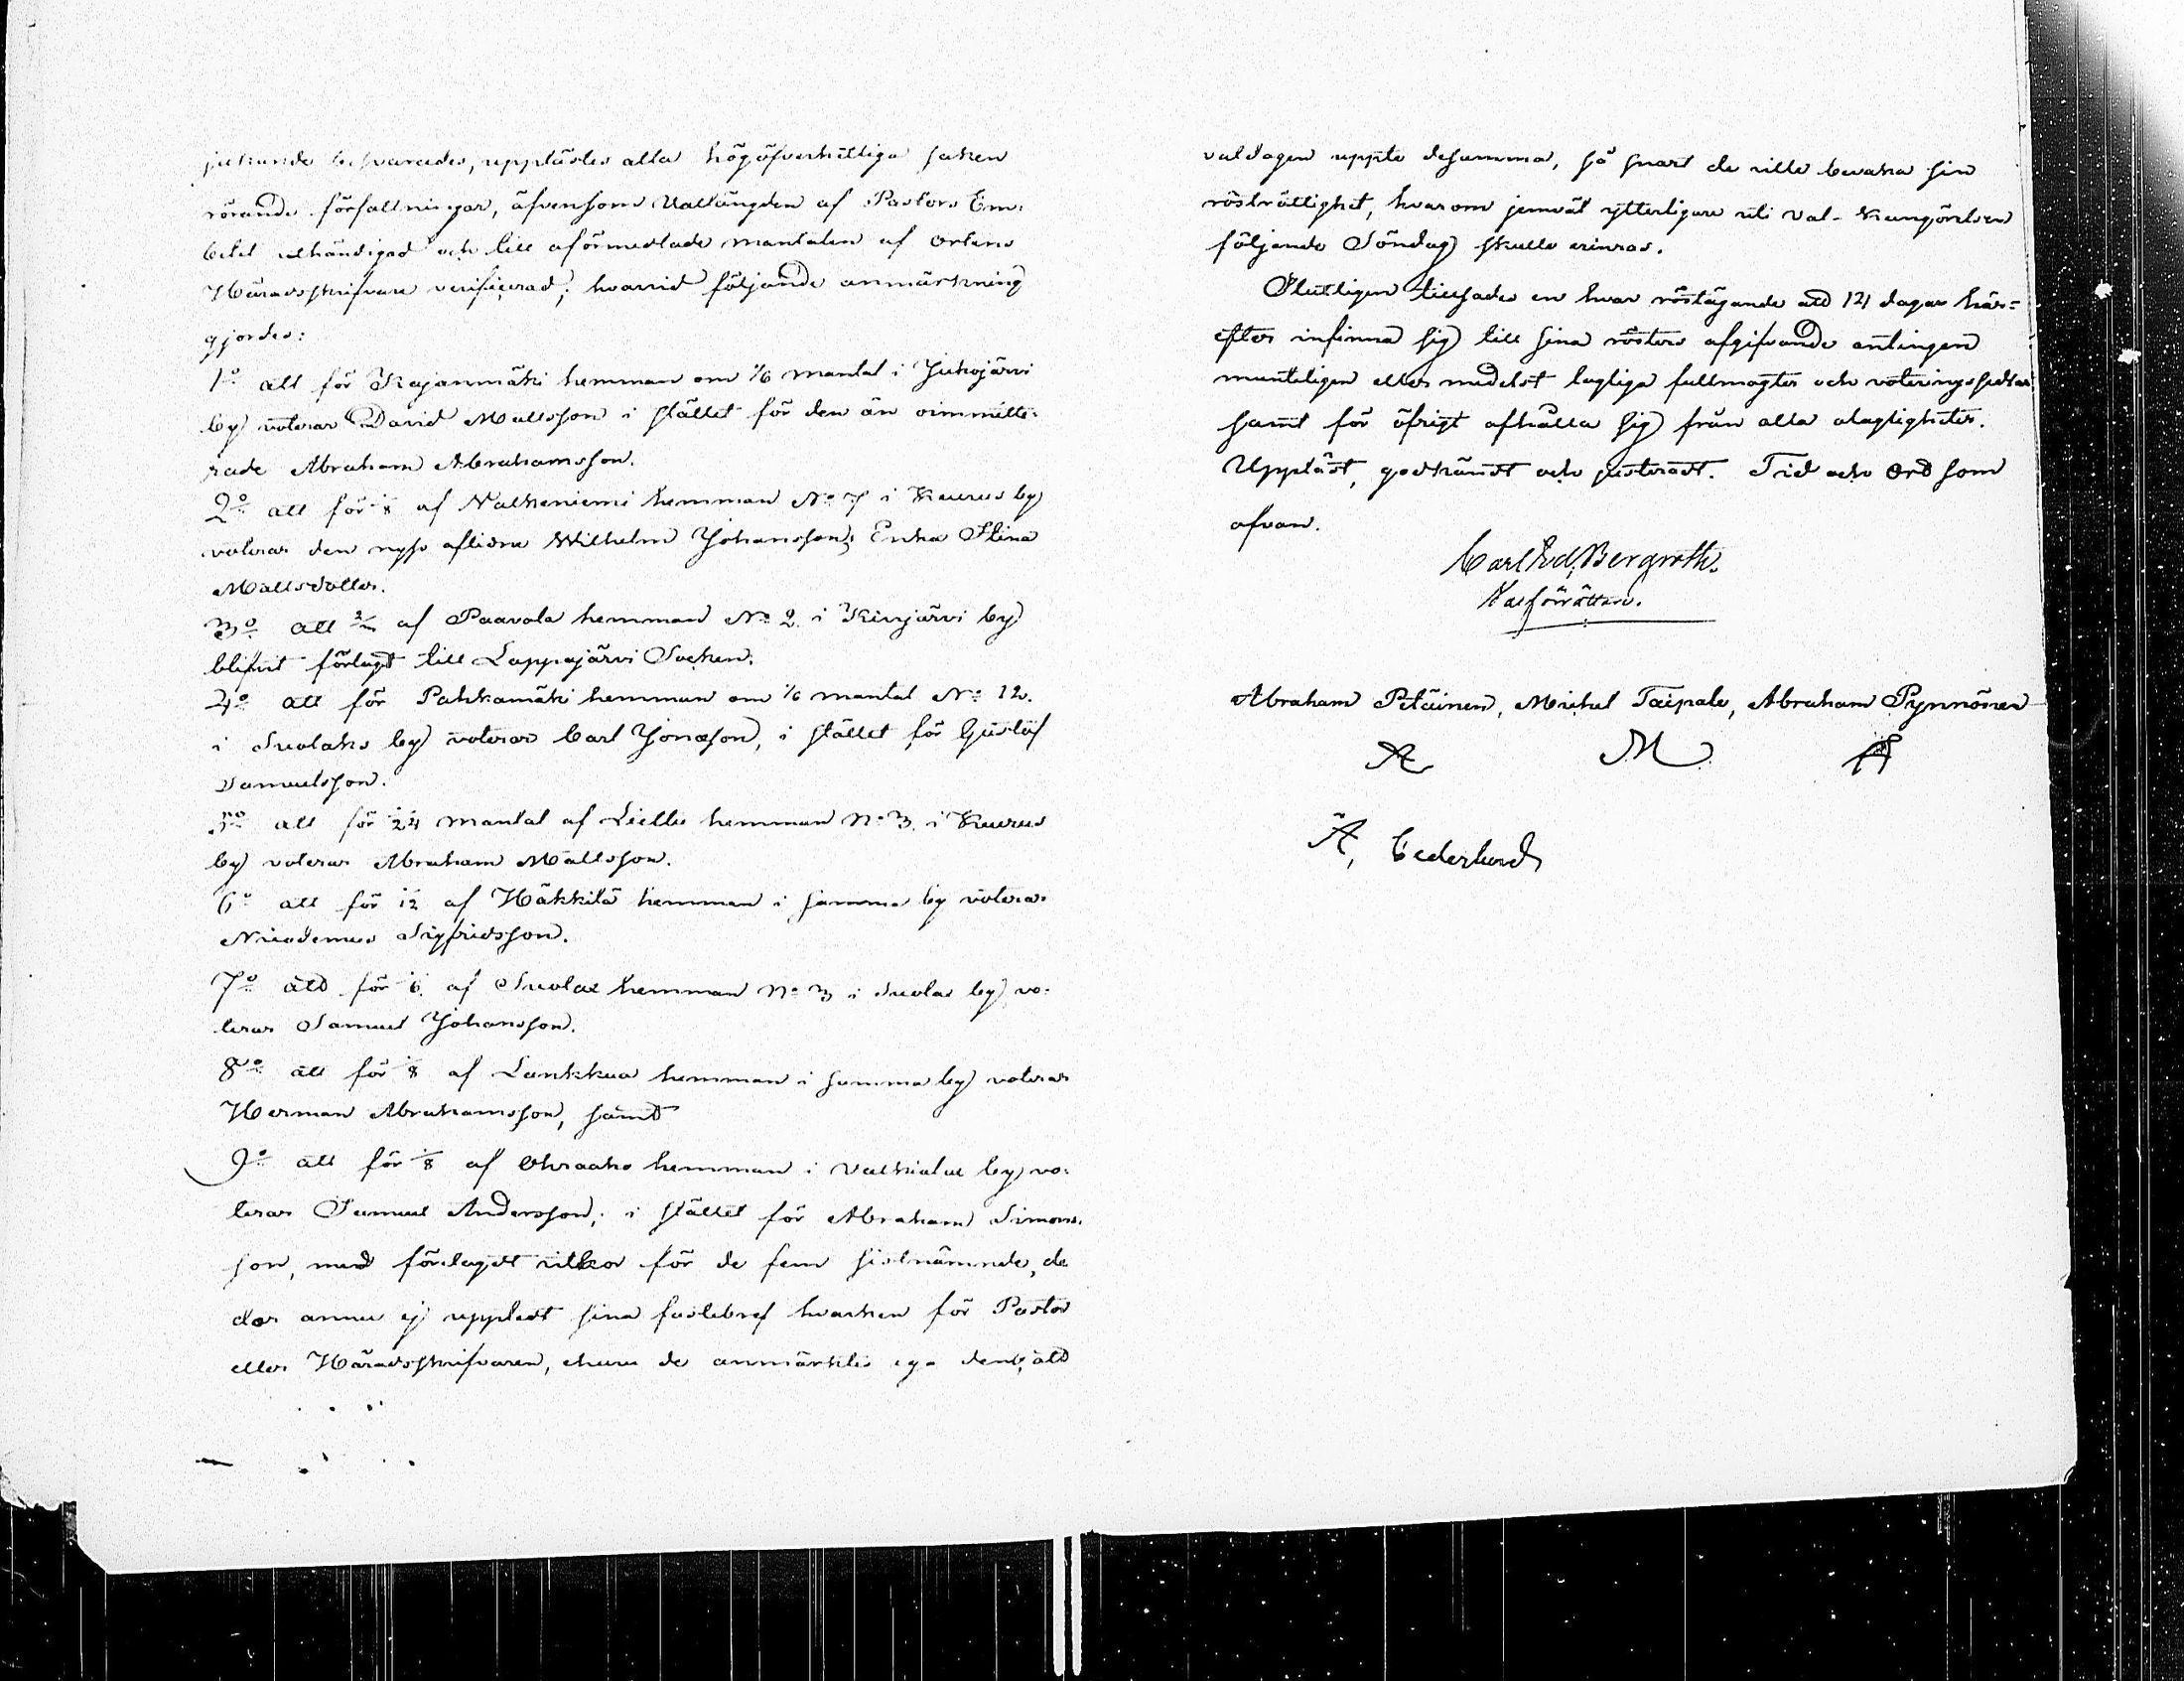 jakande besvarades, upplästes alla högöfverhetliga saken
rörande författningar, äfvensom Vallängden af Pastors Em-
betet uthändigad och till oförmedlade mantalen af ortens
Häradsskrifvare verificerad; hvarvid följande anmärkning
gjordes:
1o att för Kajanmäki hemman om 1/6 mantal i Jukojärvi
by voterar David Mattsson i stället för den än oimmitte-
rade Abraham Abrahamsson.
2o att för 1/8 af Valkeniemi hemman No 7 i Kuurus by
voterar den nyss aflidne Wilhelm Johanssons Enka Stina
Mattsdotter.
3o att af Paavola hemman No 2 i Kinjärvi by
blifvit förlagdt till Lappajärvi Socken.
4o att för Pahkamäki hemman om 1/6 mantal No 12.
i Suolaks by voterar Carl Jonasson, i stället för Gustaf
Samuelsson.
5o att för 1/24 mantal af hemman No 3. i Kuurus
by voterar Abraham Mattsson.
6o att för 1/12 af Häkkilä hemman i samma by voterar
Nicodemus Sigfridsson.
7o att för 1/6 af Suolax hemman No 3 i Suolax by vo-
terar Samuel Johansson.
8o att för 1/8 af Lunkkua hemman i samma by voterar
Herman Abrahamsson, samt
9o att för 1/8 af hemman i Valkialax by vo-
terar Samuel Andersson, i stället för Abraham Simons-
son, med förelagdt vilkor för de fem sistnämnde, de
der ännu ej upptedt sina fastebref hvarken för Pastor
eller Häradsskrifvaren, ehuru de anmärktes ega dem, att
valdagen uppte desamma, så snart de ville bevaka sin
rösträttighet, hvarom jemväl ytterligare uti Val-Kungörelsen
följande Söndag skulle erinras.
Slutligen tillsades en hvar röstägande att 14 dagar här-
efter infinna sig till sina rösters afgifvande antingen
munteligen eller medelst lagliga fullmagter och voteringssedlar
samt för öfrigt afhålla sig från alla olagligheter.
Uppläst, godkändt och justeradt. Tid och Ord som
ofvan.
Carl Ed. Bergroth.
Valförrättare.
Abraham Petäinen, Michel Taipale, Abraham Pynnönen
A M A
A, Cederlund